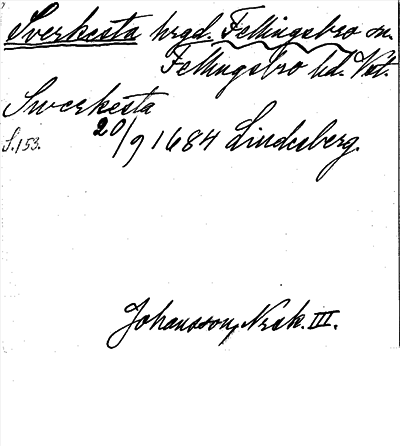 Sverkesta hrgd. Fellingsbro sn.
Fellingsbro hd. Vst.
Swerkesta
S.153. 20/9 1684 Lindesberg.
Johansson, Norask. III.